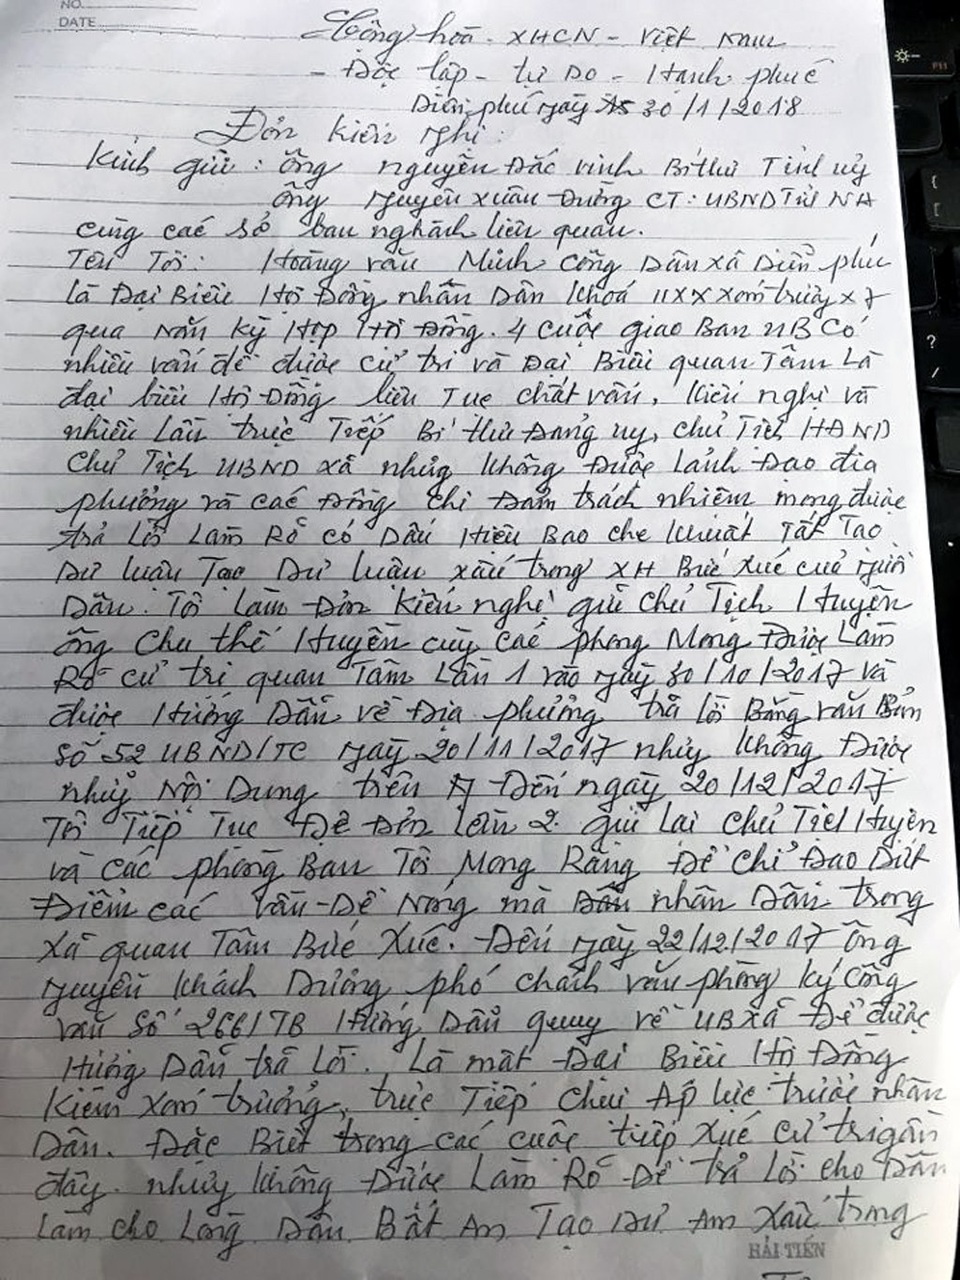 NO.
DATE
Cộng hoà - XHCN - Việt Nam
- Độc lập - Tự Do - Hạnh phúc
Diễn phúc ngày 30/1/2018
Đơn kiến nghị:
Kính gửi: Ông nguyễn Đắc vinh Bí thư Tỉnh uỷ
Ông nguyễn xuân Đường CT: UBND Tỉnh NA
cùng các sở ban nghành liên quan.
Tên Tôi: Hoàng văn Minh công Dân xã Diễn phúc
là Đại Biểu Hội Đồng nhân Dân khoá xóm trưởng x 7
qua năm kỳ Họp Hội Đồng. 4 cuộc giao Ban UB Có
nhiều vấn đề được cử tri và Đại Biểu quan Tâm Là
đại biểu Hội Đồng liên Tục chất vấn, kiến nghị và
nhiều lần trực Tiếp Bí thư Đảng uỷ, chủ Tịch HĐND
Chủ Tịch UBND xã nhưng không Được Lảnh Đạo địa
phương và các Đồng chí Đảm trách nhiệm mong được
trả lời Làm Rỏ có Dấu Hiệu Bao che khuất Tất Tạo
Dư luận Tạo Dư luận xấu trong XH Bức xúc của người
Dân. Tôi làm Đơn kiến nghị gửi chủ Tịch Huyện
ông Chu thế Huyền cùng các phòng Mong Được Làm
Rỏ cử tri quan Tâm Lần 1 vào ngày 30/10/2017 và
được Hướng Dẫn về Địa phương trả lời Bằng văn Bản
Số 52 UBND/TC ngày 20/11/2017 nhưng không Được
như Nội Dung trên Đến ngày 20/12/2017
Tôi Tiếp Tục Đề Đơn Lần 2. gửi lại chủ Tịch Huyện
và các phòng Ban Tôi Mong Rằng Để Chỉ Đạo Dứt
Điểm các Vấn Đề Nóng mà nhân Dân trong
xã quan Tâm Bức Xúc. Đến ngày 22/12/2017 Ông
nguyễn khách Dương phó chánh văn phòng ký công
văn Số 266/TB Hướng Dẫn quay về UB xã Để được
Hướng Dẫn trả Lời. Là một Đại Biểu Hội Đồng
kiêm xóm trưởng, trực Tiếp Chịu Áp lực trước nhân
Dân. Đặc Biệt trong các cuộc tiếp xúc cử tri gần
đây. nhưng không Được Làm Rõ Để trả lời cho Dân
Làm cho Lòng Dân Bất An Tạo Dư Âm Xấu trong
HẢI TIẾN